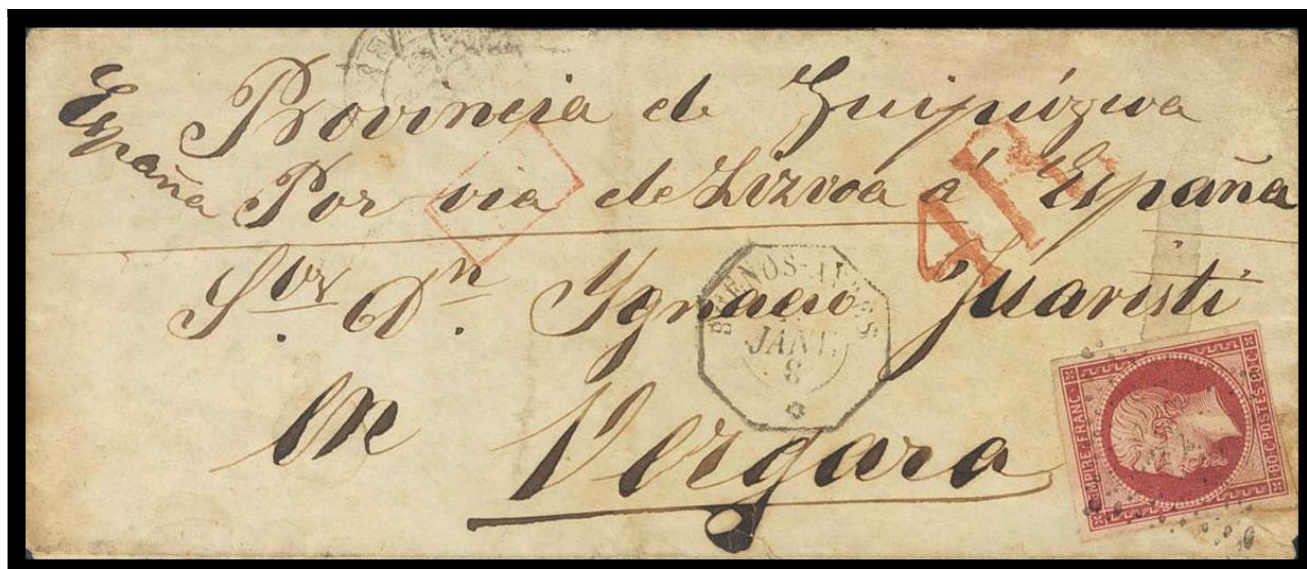 España
Provincia de Guipúzcoa
Por via de Lizvoa á España
4Rs.
Sor. Dn. Ygnacio Juaristi
BUENOS-AYRES
JANV.
8
en Vergara
EMPIRE FRANC.
80 C. POSTES 80 C.